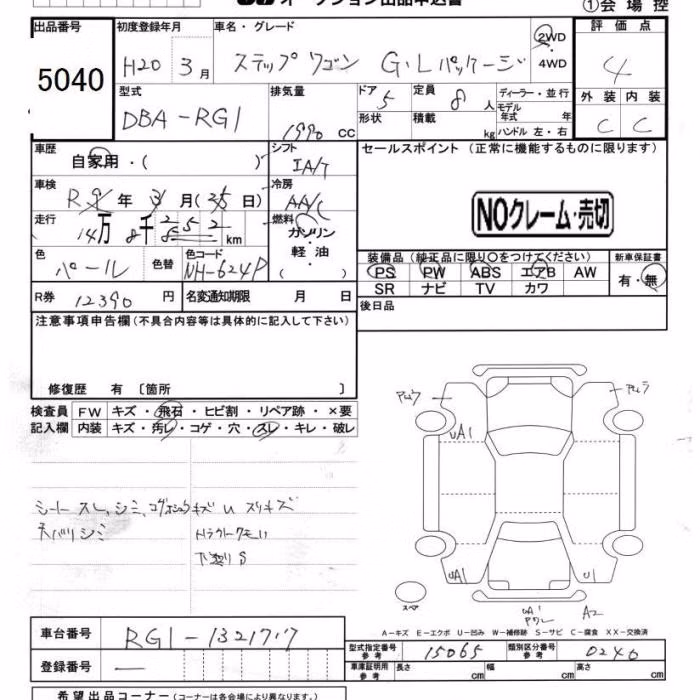 オークション出品申込書
①会場控
出品番号 初度登録年月 車名・グレード 評価点
5040 H20 3月 ステップワゴン G・Lパッケージ 2WD 4WD 4
型式 排気量 ドア 定員 ディーラー・並行 外装 内装
DBA-RG1 1990 cc 5 8人 モデル年式 年 C C
形状 積載 kg ハンドル 左・右
車歴 シフト セールスポイント (正常に機能するものに限ります)
自家用・( ) IA/T
車検 冷房
年 月( 日) AA/C
NOクレーム・売切
走行 燃料
14万 8千 252 km ガソリン・軽油・( )
装備品 (純正品に限り○をつけてください) 新車保証書
色 色替 色コード
パール NH-624P
PS PW ABS エアB AW 有・無
SR ナビ TV カワ
R券 12390円 名変通知期限 月 日
後日品
注意事項申告欄 (不具合内容等は具体的に記入して下さい)
修復歴 有 〔箇所 〕
検査員記入欄
FW キズ・飛石・ヒビ割・リペア跡・×要
内装 キズ・汚レ・コゲ・穴・スレ・キレ・破レ
UA1
天バリシミ
下廻りS
UA1 U1
スペア
UA1 A2
A-キズ E-エクボ U-凹み W-補修跡 S-サビ C-腐食 XX-交換済
車台番号 RG1-1321717
登録番号 —
型式指定番号 参考 15065 類別区分番号 参考 0240
車庫証明用 参考 長さ cm 幅 cm 高さ cm
希望出品コーナー (コーナーは各会場により異なります。)